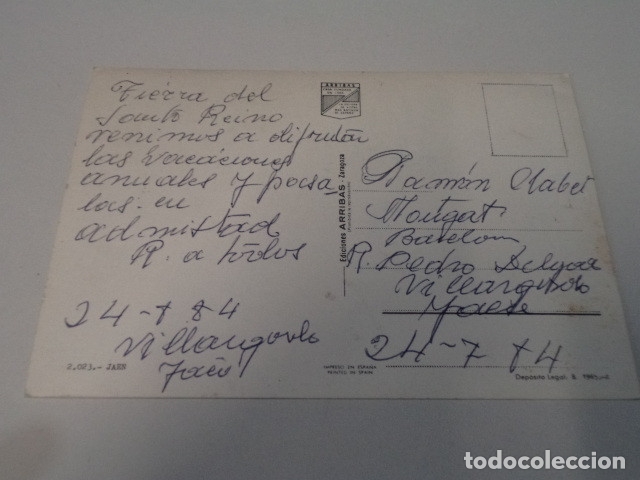 Tierra del
Santo Reino
venimos a disfrutar
las vacaciones
anuales y pasa
las en
admistad
R. a todos
24-7 84
Villargordo
Jaén
2.023.- JAEN
ARRIBAS
Ediciones ARRIBAS - Zaragoza
IMPRESO EN ESPAÑA
PRINTED IN SPAIN
Ramón Clabet
Montgat
Barcelon
R. Pedro Delgado
Villargordo
Jaen
24-7 84
Depósito Legal
todocoleccion.net